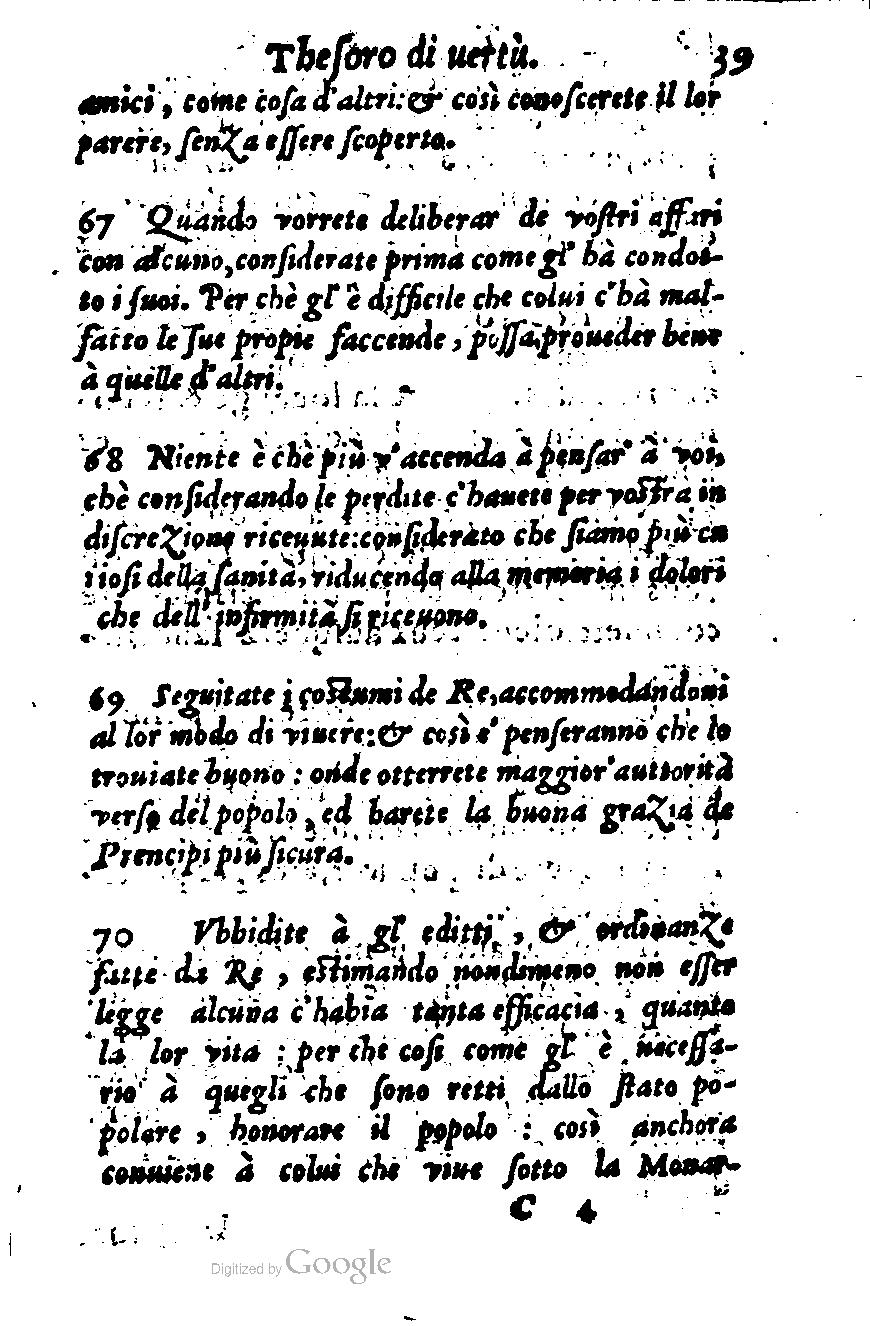 Theſoro di uertù. 39
amici, come coſa d'altri: & così conoſcerete il lor
parere, ſenza eſſere ſcoperto.
67 Quando vorrete deliberar de voſtri affari
con alcuno, conſiderate prima come gl' hà condot-
to i ſuoi. Per chè gl' è difficile che colui c'hà mal-
fatto le ſue propie faccende, poſſa proueder bene
à quelle d'altri.
68 Niente è chè più v'accenda à penſar' à voi,
chè conſiderando le perdite c'hauete per voſtra in
diſcrezione riceuute: conſiderato che ſiamo più cu
rioſi della ſanità, riducendo alla memoria i dolori
che dell' infirmità ſi riceuono.
69 Seguitate i coſtumi de Re, accommodandoui
al lor modo di viuere: & così e' penſeranno che lo
trouiate buono: onde otterrete maggior' auttorità
verſo del popolo, ed harete la buona grazia de
Prencipi più ſicura.
70 Vbbidite à gl' editti, & ordinanze
fatte da Re, eſtimando nondimeno non eſſer
legge alcuna c'habia tanta efficacia, quanto
la lor vita: per che coſi come gl' è neceſſa-
rio à quegli che ſono retti dallo ſtato po-
polare, honorare il popolo: così anchora
conuiene à colui che viue ſotto la Monar-
C 4
Digitized by Google